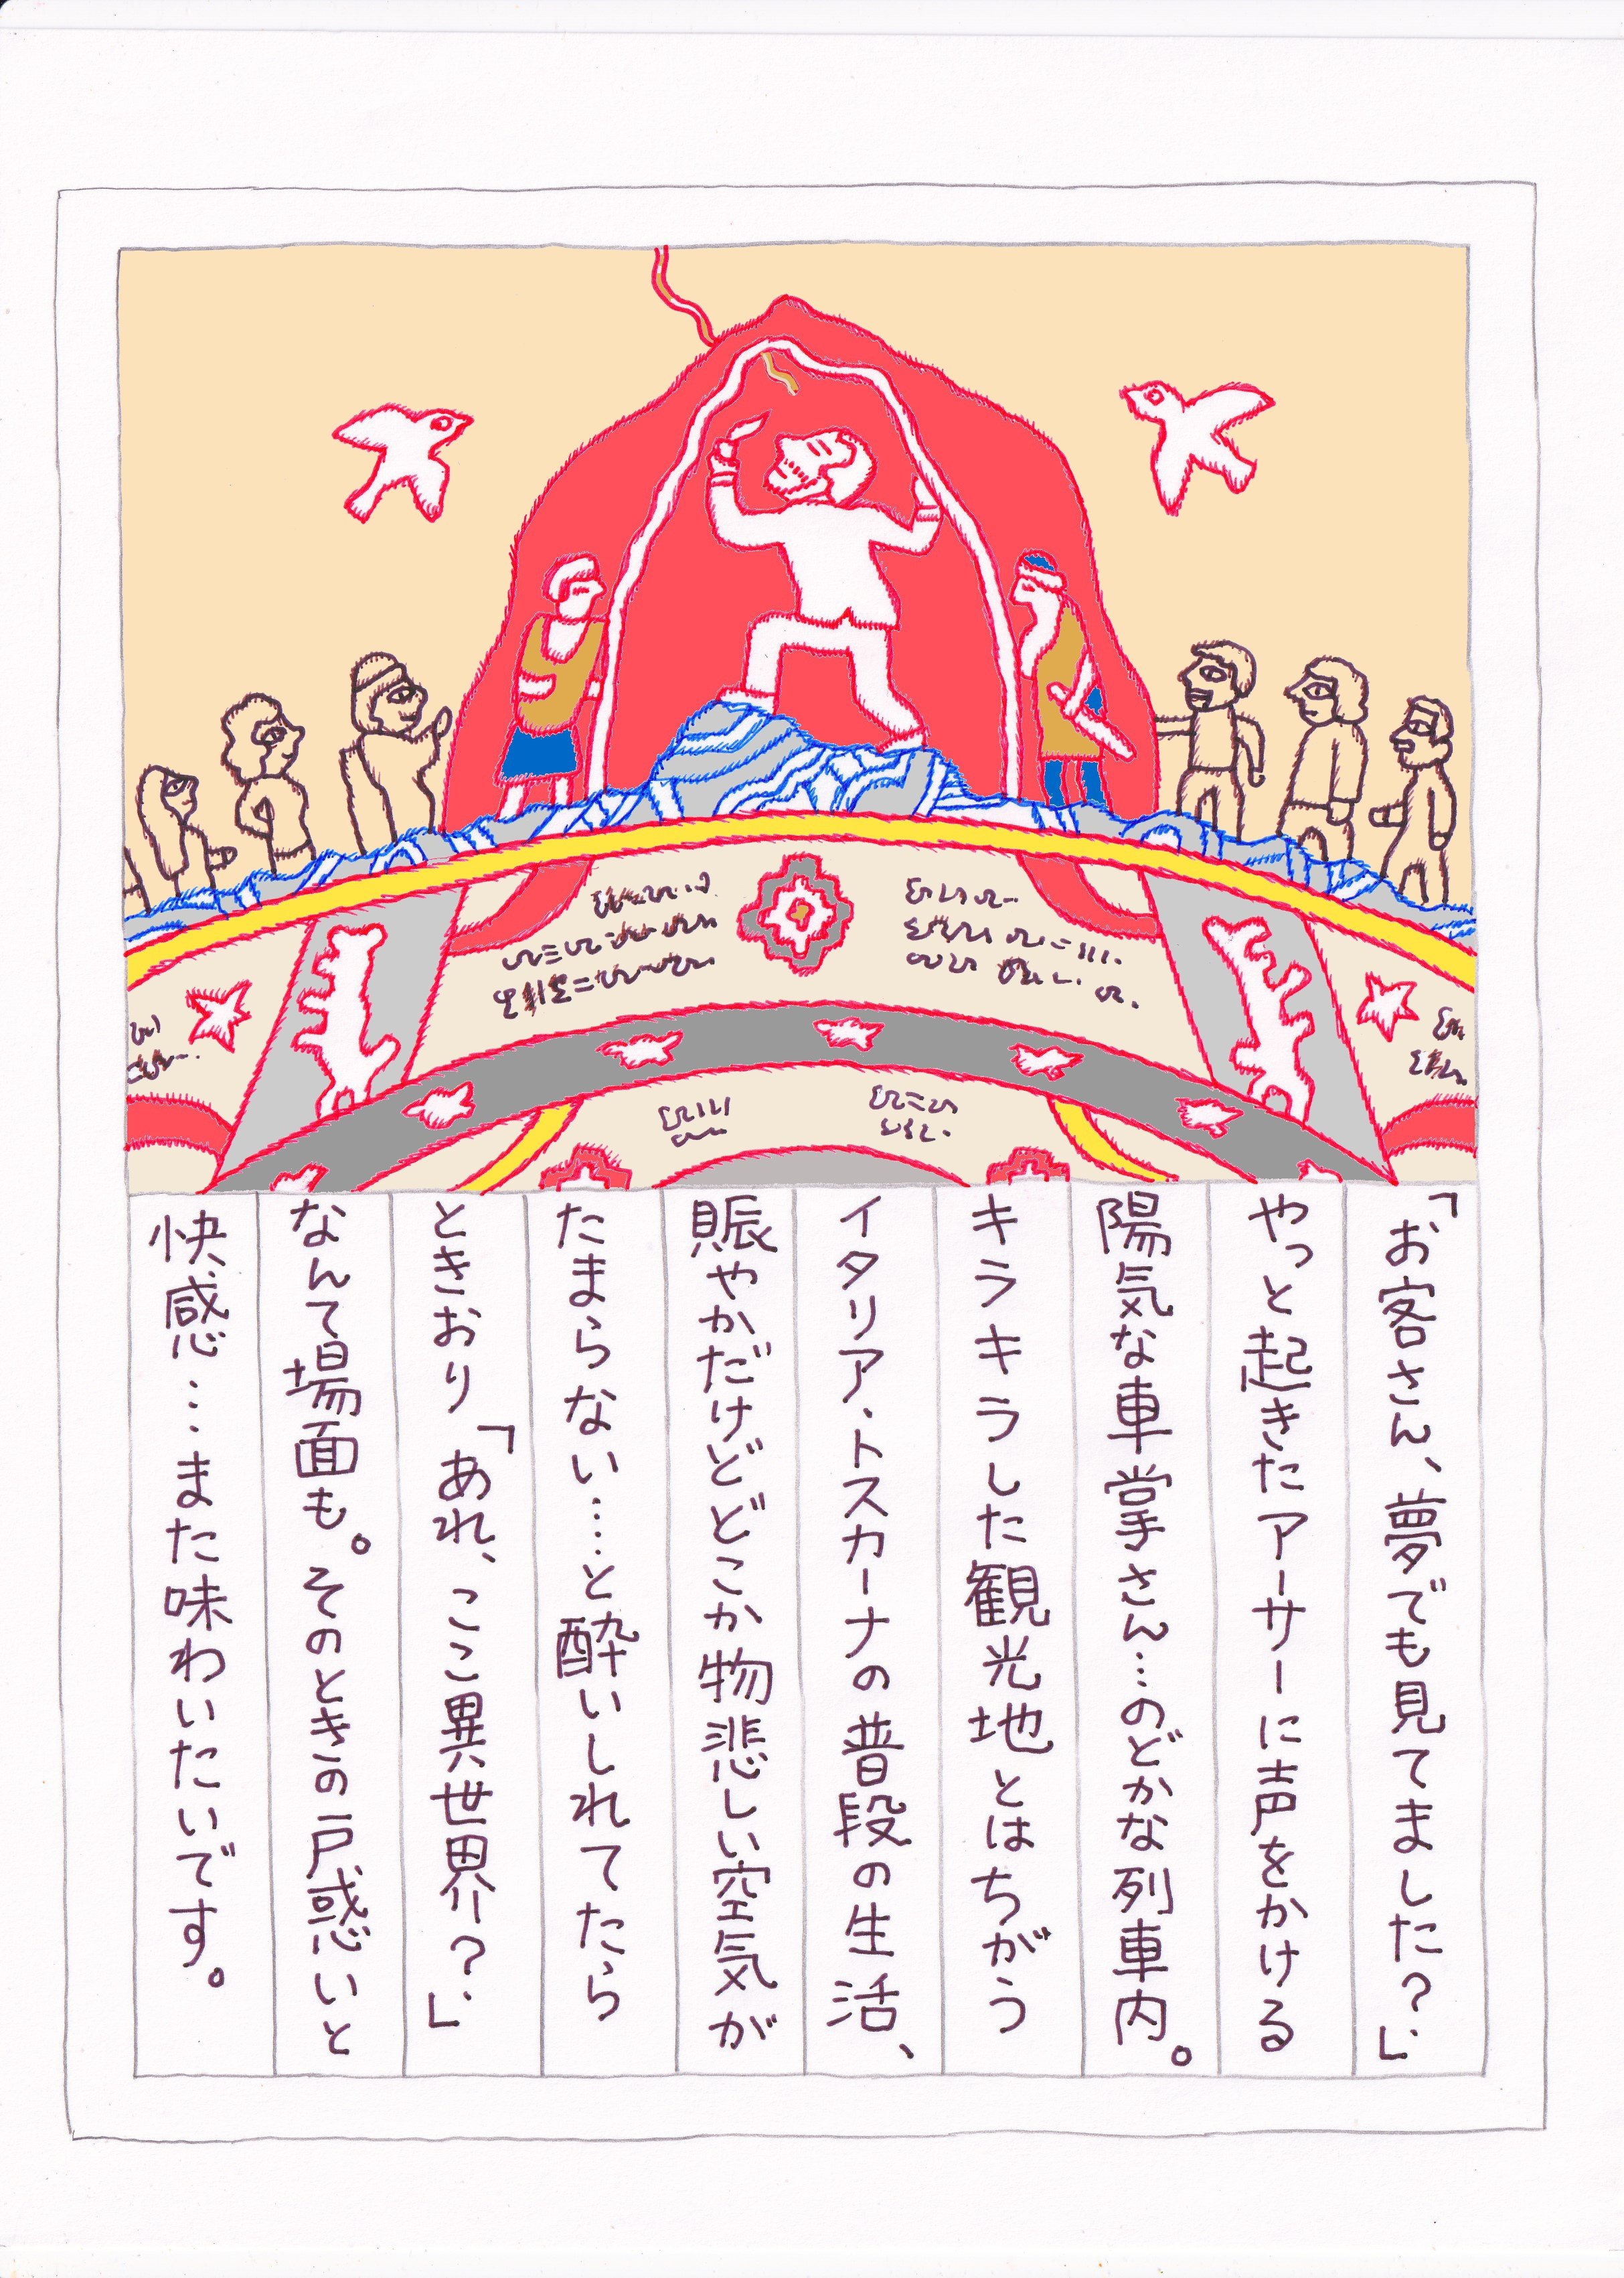 「お客さん、夢でも見てました？」
やっと起きたアーサーに声をかける
陽気な車掌さん…のどかな列車内。
キラキラした観光地とはちがう
イタリア・トスカーナの普段の生活、
賑やかだけどどこか物悲しい空気が
たまらない…と酔いしれてたら
ときおり「あれ、ここ異世界？」
なんて場面も。そのときの戸惑いと
快感…また味わいたいです。